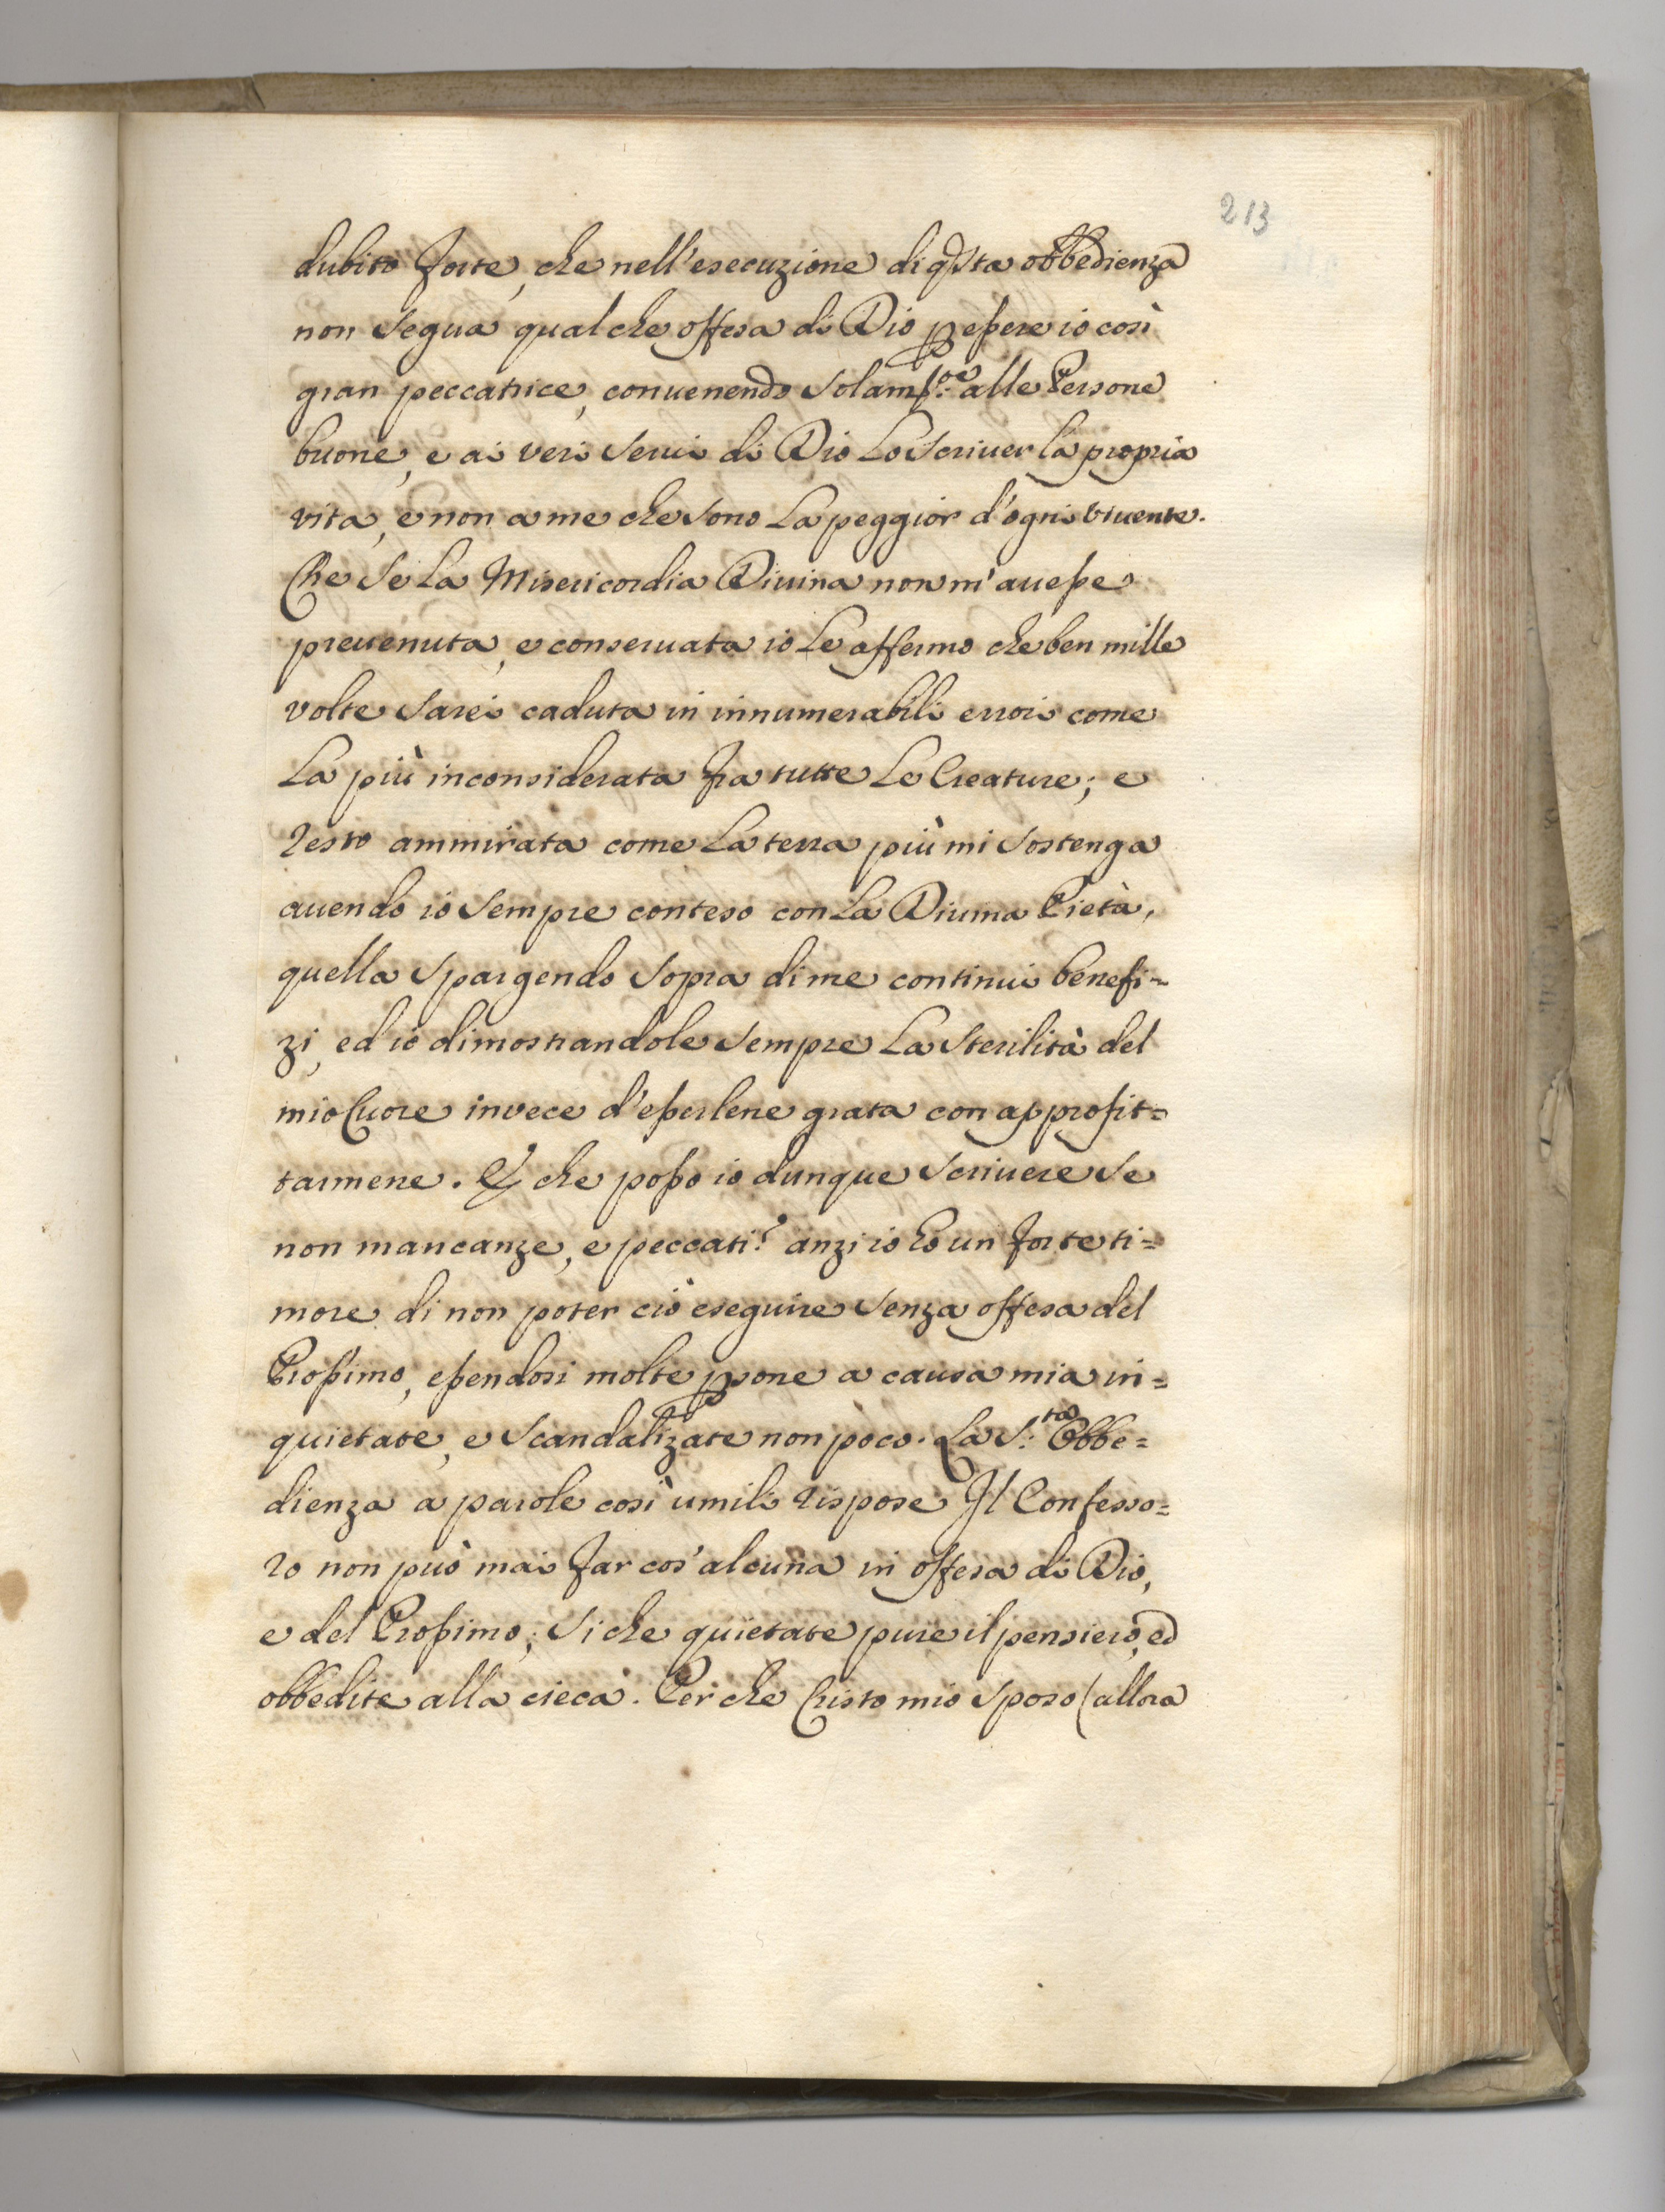 213
dubito forte, che nell'esecuzione di qsta obbedienza
non segua qualche offesa di Dio p essere io così
gran peccatrice, convenendo solamte alle Persone
buone, e ai veri servi di Dio Lo scriver la propria
vita, e non a me che sono La peggior d'ogni vivente.
Che se La Misericordia Divina non m'avesse
prevenuta, e conservata io Le affermo che ben mille
volte sarei caduta in innumerabili errori come
La più inconsiderata fra tutte Le Creature; e
resto ammirata come La terra più mi sostenga
avendo io sempre conteso con La Divina Pietà,
quella spargendo sopra di me continui benefi-
zi, ed io dimostrandole sempre La sterilità del
mio Cuore invece d'esserlene grata con approfit=
tarmene. E che posso io dunque scrivere se
non mancanze, e peccati? anzi io ho un forte ti=
more di non poter ciò eseguire senza offesa del
Prossimo, essendosi molte psone a causa mia in=
quietate, e scandalizate non poco. La S:ta Obbe=
dienza a parole così umili rispose Il Confesso=
ro non può mai far cos'alcuna in offesa di Dio,
e del Prossimo; si che quietate pure il pensiero, ed
obbedite alla cieca. Perche Cristo mio sposo (allora